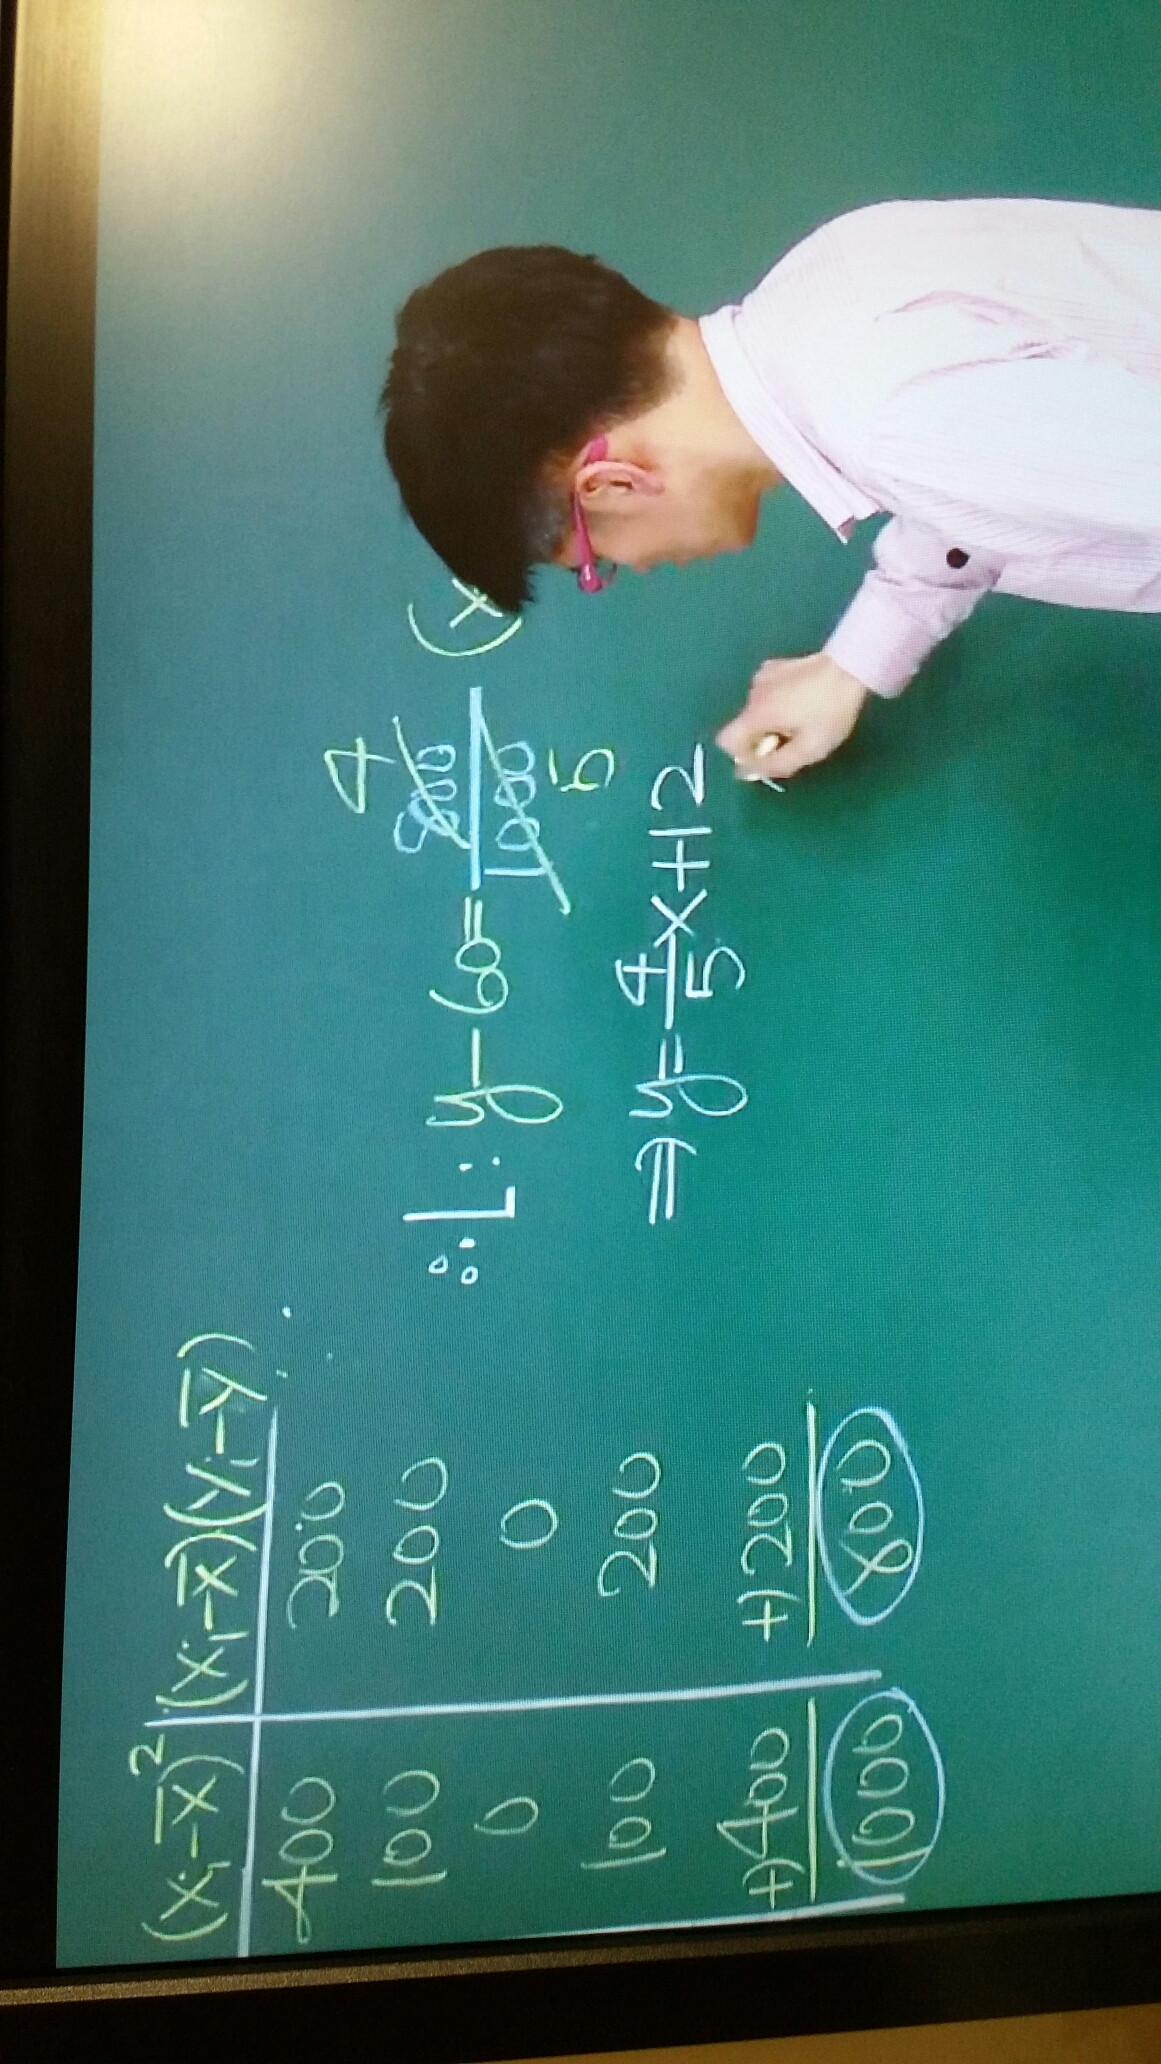 (xᵢ-x̄)² | (xᵢ-x̄)(yᵢ-ȳ)
400 | 200
100 | 200
0 | 0
100 | 200
+) 400 | +) 200
1000 | 800
∴ L: y-60= 800/1000 (x
4
5
⇒ y=4/5 x+12